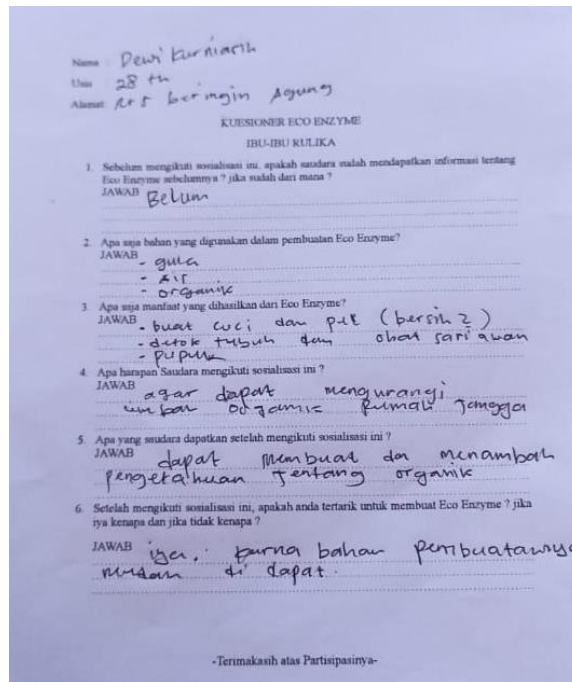 Nama : Dewi Kurniasih
Usia 28 th
Alamat Rt 5 beringin Agung
KUESIONER ECO ENZYME
IBU-IBU RULIKA
1. Sebelum mengikuti sosialisasi ini, apakah saudara sudah mendapatkan informasi tentang
Eco Enzyme sebelumnya ? jika sudah dari mana ?
JAWAB Belum
2. Apa saja bahan yang digunakan dalam pembuatan Eco Enzyme?
JAWAB - gula
- Air
- organik
3. Apa saja manfaat yang dihasilkan dari Eco Enzyme?
JAWAB - buat cuci dan pel (bersih2)
- detok tubuh dan obat sariawan
- pupuk
4. Apa harapan Saudara mengikuti sosialisasi ini ?
JAWAB agar dapat mengurangi
organic Rumah Tangga
5. Apa yang saudara dapatkan setelah mengikuti sosialisasi ini ?
JAWAB dapat membuat dan menambah
pengetahuan tentang organik
6. Setelah mengikuti sosialisasi ini, apakah anda tertarik untuk membuat Eco Enzyme ? jika
iya kenapa dan jika tidak kenapa ?
JAWAB iya, bahan pembuatannya
mudah di dapat.
-Terimakasih atas Partisipasinya-